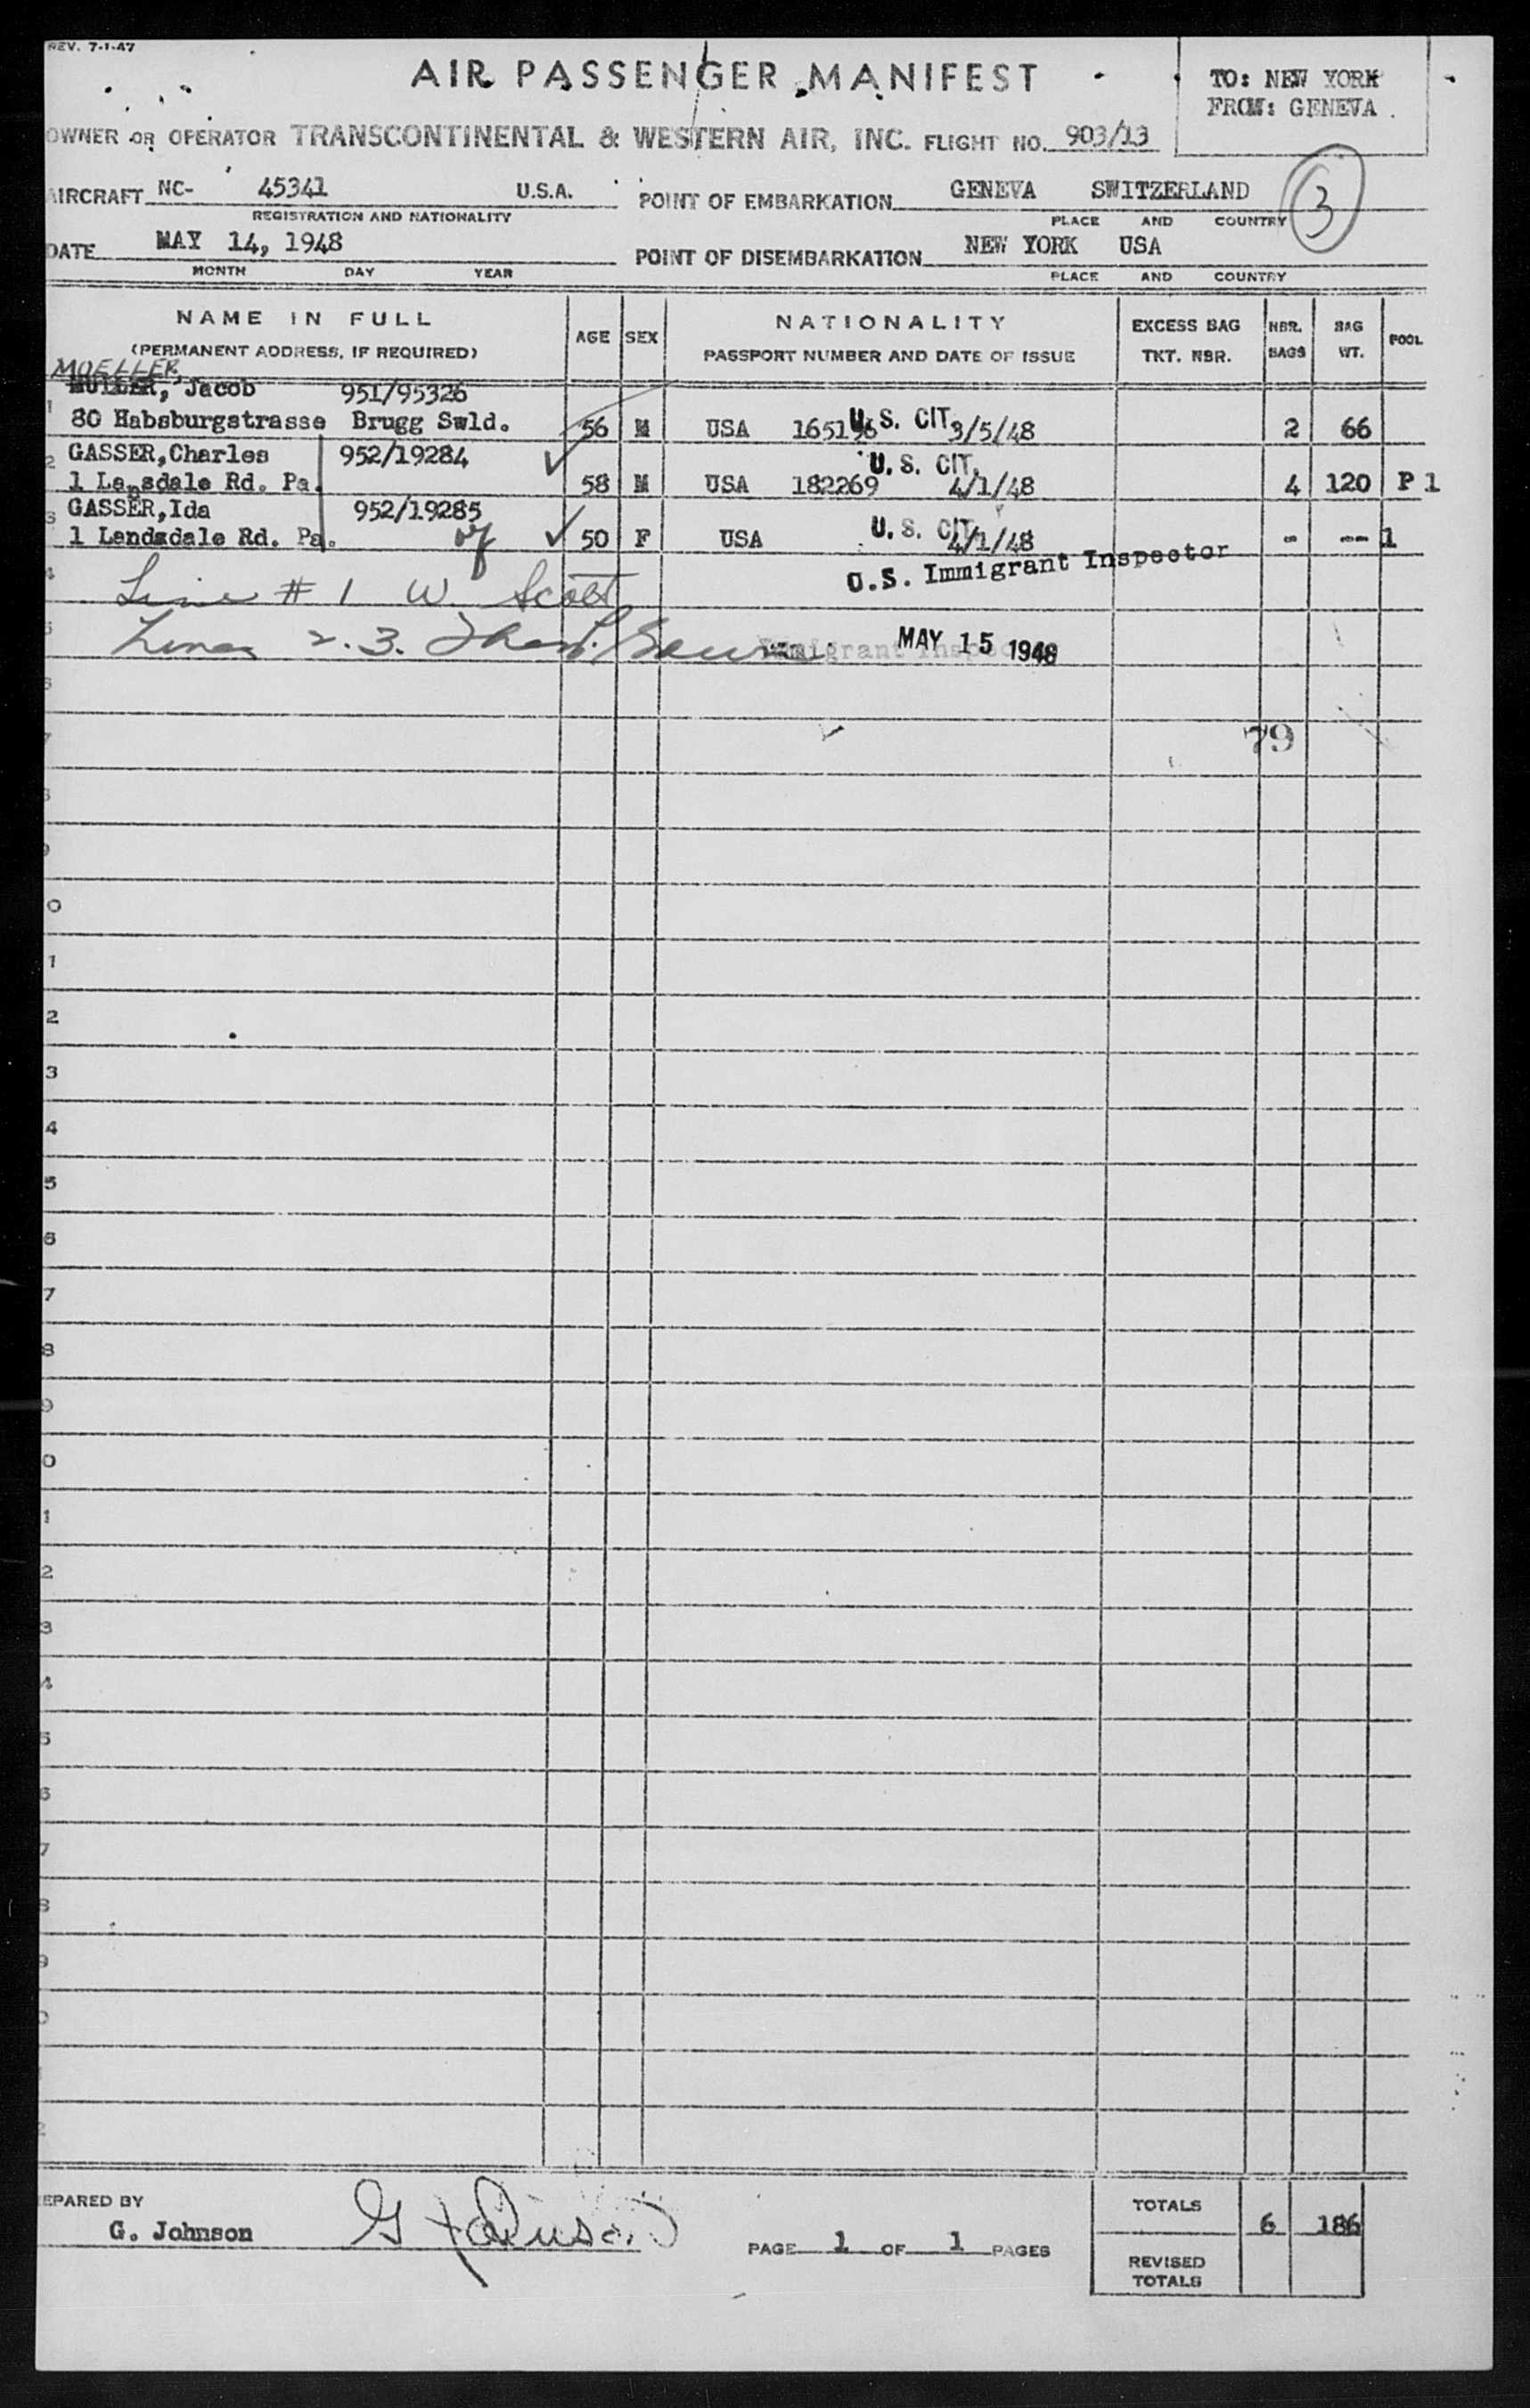 REV. 7-1-47
AIR PASSENGER MANIFEST
TO: NEW YORK
FROM: GENEVA
OWNER OR OPERATOR TRANSCONTINENTAL & WESTERN AIR, INC. FLIGHT NO. 903/13
AIRCRAFT NC- 45341 U.S.A. POINT OF EMBARKATION GENEVA SWITZERLAND
3
REGISTRATION AND NATIONALITY PLACE AND COUNTRY
DATE MAY 14, 1948 POINT OF DISEMBARKATION NEW YORK USA
MONTH DAY YEAR PLACE AND COUNTRY
NAME IN FULL AGE SEX NATIONALITY EXCESS BAG NBR. BAG POOL
(PERMANENT ADDRESS, IF REQUIRED) PASSPORT NUMBER AND DATE OF ISSUE TKT. NBR. BAGS WT.
MOELLER,
MULLER, Jacob 951/95326
1 80 Habsburgstrasse Brugg Swld. 56 M USA 165196 U. S. CIT. 3/5/48 2 66
2 GASSER,Charles 952/19284 U. S. CIT.
1 Lansdale Rd. Pa. 58 M USA 182269 4/1/48 4 120 P 1
3 GASSER,Ida 952/19285
1 Landsdale Rd. Pa. of 50 F USA U. S. CIT. 4/1/48 - -- 1
U.S. Immigrant Inspector
4 Line # 1 W Scott
5 Lines 2.3. Immigrant Inspec MAY 15 1948
6
7 79
8
9
0
1
2
3
4
5
6
7
8
9
0
1
2
3
4
5
6
7
8
9
0
2
EPARED BY
G. Johnson G Johnson
PAGE 1 OF 1 PAGES
TOTALS 6 186
REVISED
TOTALS